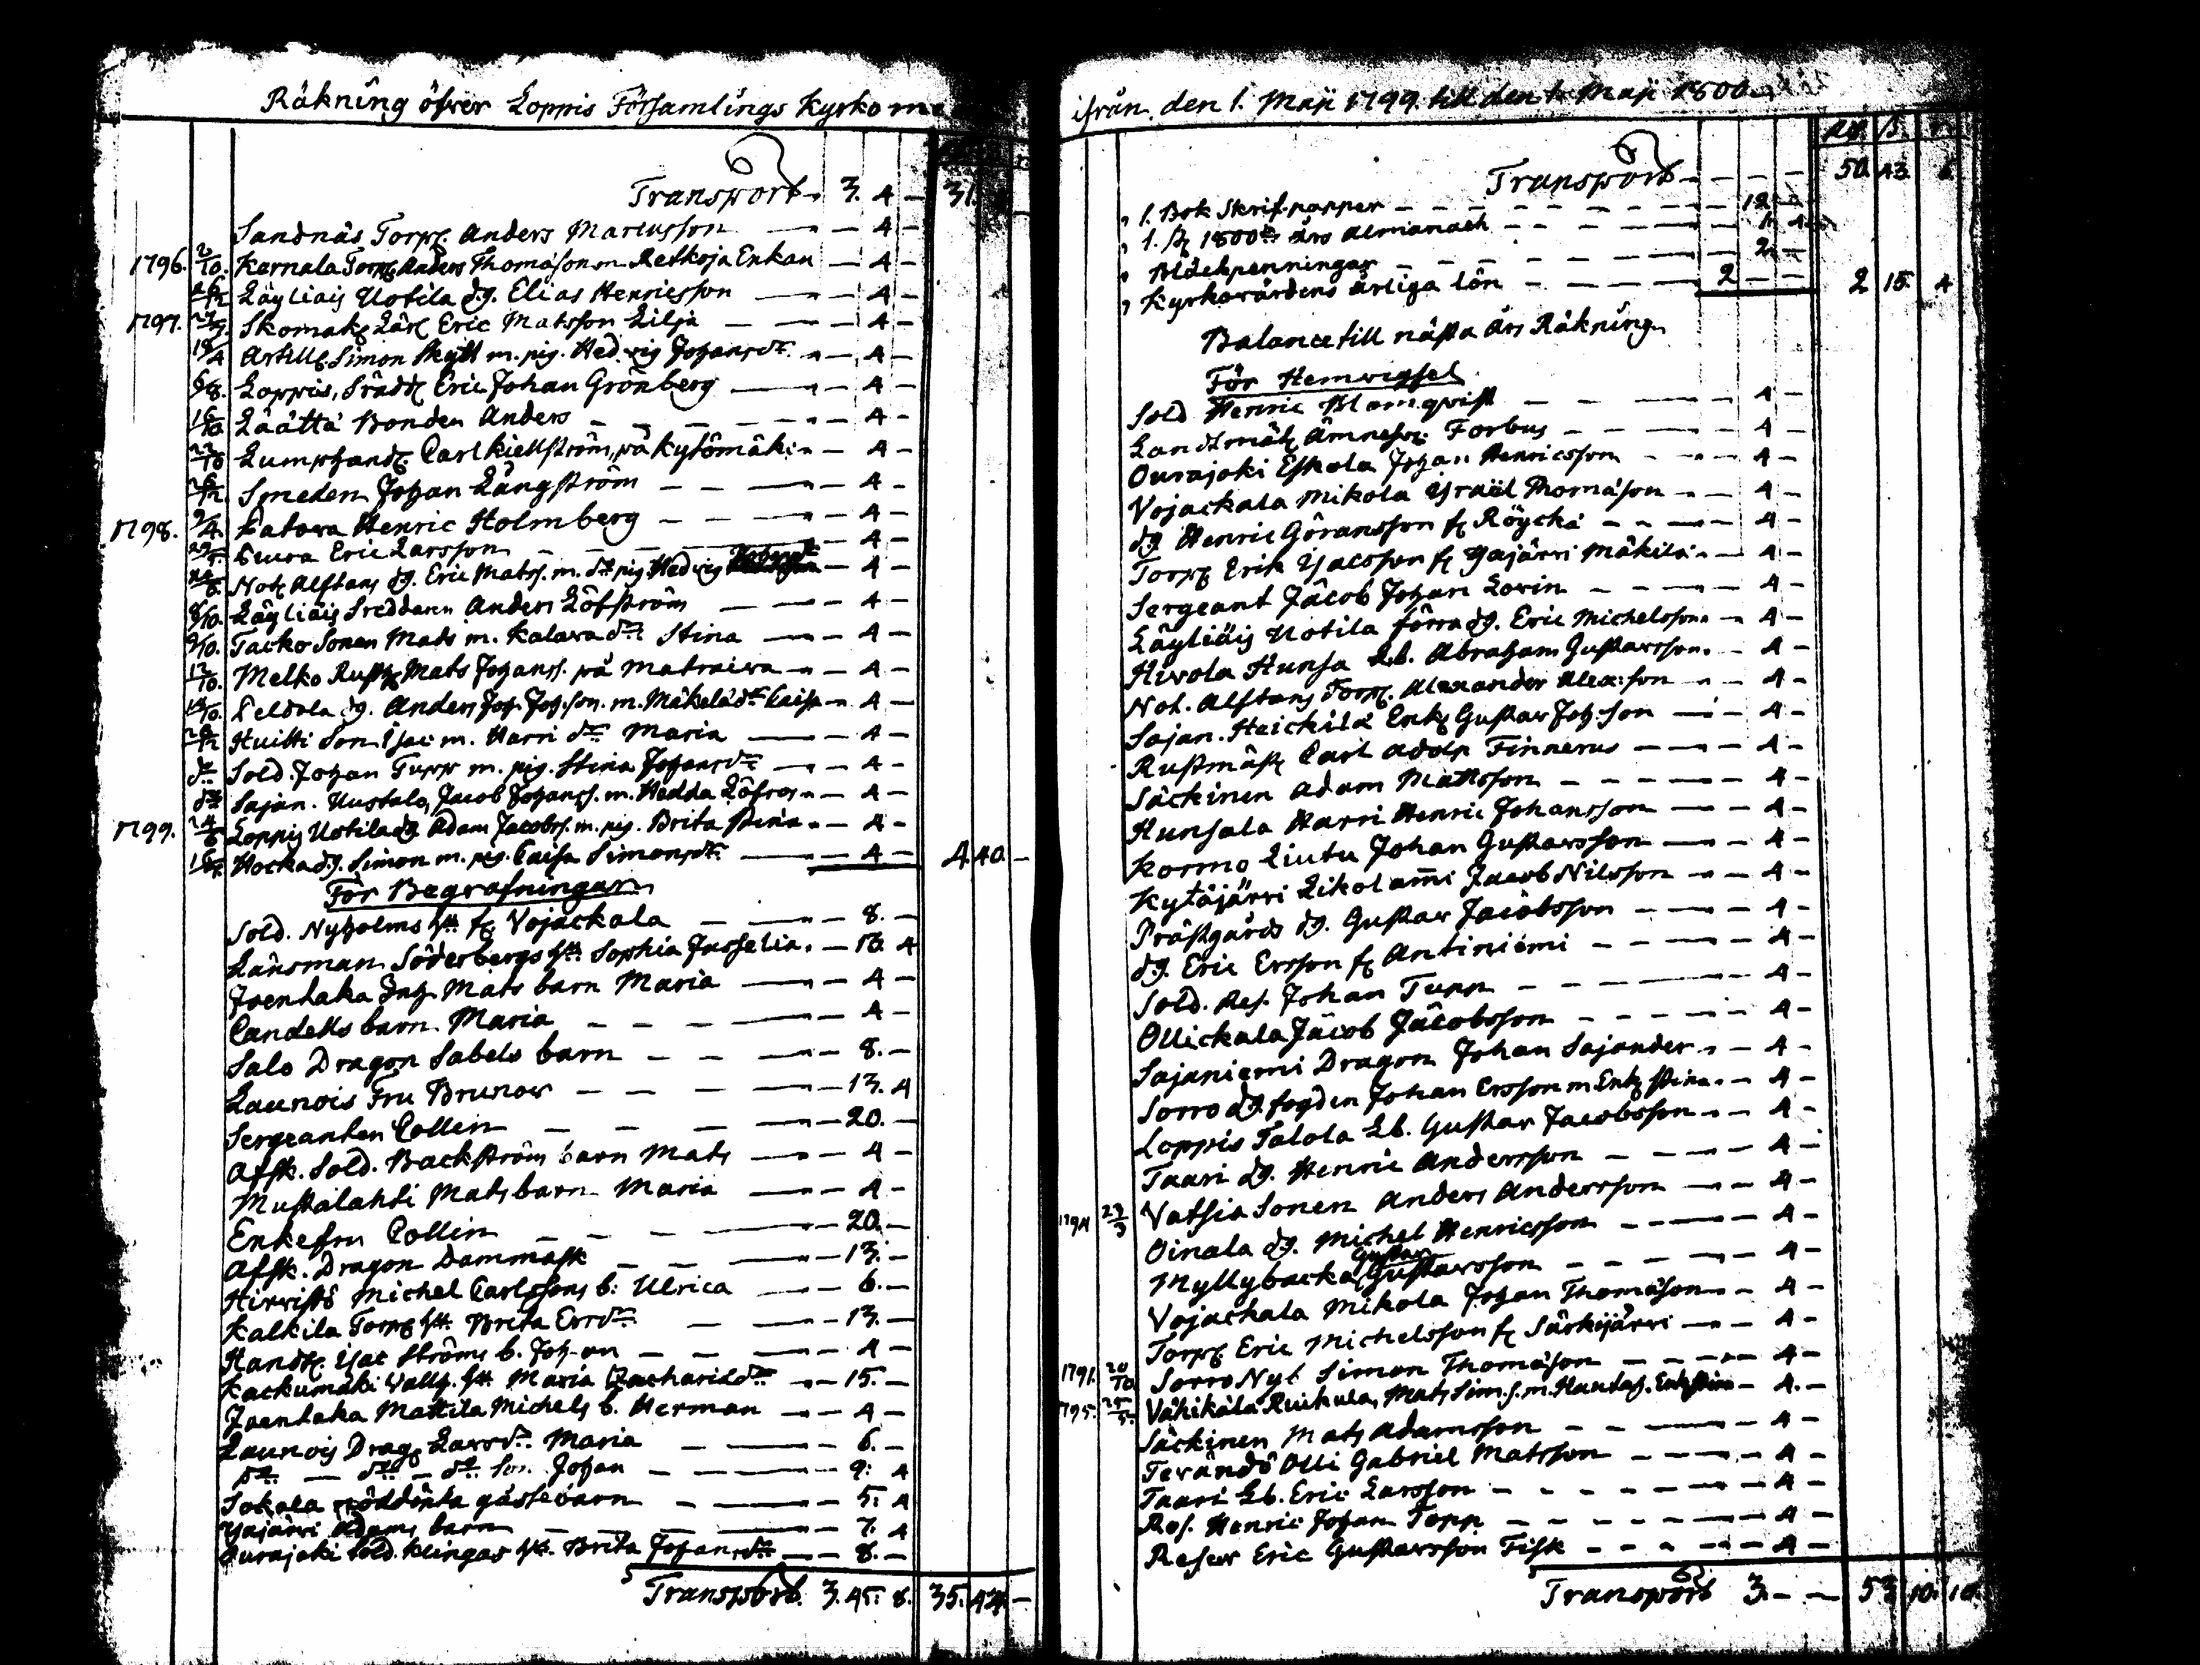 Räkning öfver Loppis Församlings Kyrko
Transport 3. 4 – 31.
Sandnäs Torp. Anders Marcusson – 4 –
1796. 2/10. Kernala Torp. Anders Thomasson m. Retkoja Enkan – 4 –
Läyliäis Uotila dg. Elias Henricsson – 4 –
1797. Skomak. Lär. Eric Matsson Lilja – 4 –
Artill. Simon Skytt m. pig. Hedvig Johansdr. – 4 –
Loppis, Srädd. Eric Johan Grönberg – 4 –
Läättä Bonden Anders – 4 –
Lumphand. Carl Kiellström, på Kytömäki – 4 –
Smeden Johan Långström – 4 –
1798. 9/4. Katava Henric Holmberg – 4 –
Leura Eric Larsson – 4 –
Not. Alftans dg. Eric Matss. m. do pig. Hedvig – 4 –
8/10. Läyliäis Sreddaren Anders Löfström – 4 –
9/10. Tacko Sonen Mats m. Kalava dr. Stina – 4 –
Melko Rusth. Mats Johanss. på Matraiva – 4 –
Peldola dg. Anders Joh. Joh.son. m. Mäkelä dr. Caisa – 4 –
Huitti Son Isac m. Harri dr. Maria – 4 –
do Sold. Johan Tupp m. pig. Stina Johansdr. – 4 –
do Sajan. Uustalo, Jacob Johanss. m. Hedda Löfros – 4 –
1799. 24/6 Loppis Uotila dg. Adam Jacobss. m. pig. Brita Stina – 4 –
Hocka dg. Simon m. pig. Caisa Simonsdr. – 4 – 4. 40. –
För Begrafningar
Sold. Nyholms h. f. Vojackala – 8. –
Länsman Söderbergs h. Sophia Jusselia. – 16. 4
Joentaka Inh. Mats barn Maria – 4 –
Candells barn Maria – 4 –
Salo Dragon Sabels barn – 8. –
Launois Fru Brunow – 13. 4
Sergeanten Collin – 20. –
Afsk. Sold. Backström barn Mats – 4 –
Mustalahti Mats barn Maria – 4 –
Enkefru Collin – 20. –
Afsk. Dragon Dammask – 13. –
Hirvistö Michel Carlssons b: Ulrica – 6. –
Kalkila Torp. h. Brita Ersdr. – 13. –
Handt. Isac Ströms b. Johan – 4 –
Kackumäki Vallg. h. Maria Zacharidr. – 15. –
Joentaka Mattila Michels b. Herman – 4 –
Launois Drag. Larsdr. Maria – 6. –
do – do – do Son Johan – 9. 4
Sokala nöddöpta gåssebarn – 5. 4
Yajärvi Adams barn – 7. 4
Ourajoki Sold. Klingas h. Brita Johansdr. – 8. –
Transport. 3. 45. 8. 35. 42. –
ifrån den 1. Maji 1799. till den 1. Maji 1800.
Transport – – – – 50. 43. 6.
" 1. Bok Skrif-papper – 12. –
" 1. st. 1800de års Almanach – 1. 4
" Bläckpenningar – 2. –
" Kyrkovärdens årliga lön – 2 – – 2 15. 4
Balance till nästa års Räkning
För Hemvigsel
Sold Henric Blomqvist – 4 –
Landtmät. Ämnessv. Forbus – 4 –
Ourajoki Eskola Johan Henricsson – 4 –
Vojackala Mikola Israël Thomasson – 4 –
dg Henric Göransson f. Röyckä – 4 –
Torp. Erik Isacsson f. Yajärvi Mäkilä – 4 –
Sergeant Jacob Johan Lorin – 4 –
Läyliäis Uotila förra dg. Eric Michelsson – 4 –
Hivola Hunsa Lb. Abraham Gustavsson. – 4 –
Not. Alftans Torp. Alexander Alex:son – 4 –
Sajan. Heickilä Enk. Gustav Joh:son – 4 –
Rustmäst. Carl Adolp Finnerus – 4 –
Säckinen Adam Mattsson – 4 –
Hunsala Harri Henric Johansson – 4 –
Kormo Liutu Johan Gustavsson – 4 –
Kytäjärvi Likolami Jacob Nilsson – 4 –
Prästgårds dg. Gustav Jacobsson – 4 –
dg. Eric Ersson f. Antiniemi – 4 –
Sold. Res. Johan Tupp – 4 –
Ollickala Jacob Jacobsson – 4 –
Sajaniemi Dragon Johan Sajander – 4 –
Sorro dg. fogden Johan Ersson m Enk. Stina. – 4 –
Loppis Talola Lb. Gustav Jacobsson – 4 –
Taari dg. Henric Andersson – 4 –
1794 27/3 Vatsia Sonen Anders Andersson – 4 –
Oinala dg. Michel Henricsson – 4 –
Myllybacka Gustav Gustavsson – 4 –
Vojackala Mikola Johan Thomasson – 4 –
Torp. Eric Michelsson f. Särkijärvi – 4 –
1791. 20/10 Sorro Nyl Simon Thomasson – 4 –
1795. 25/5. Vähikälä Ruikula, Mats Sim.s. m. Hunda. Enk. Stina – 4. –
Säckinen Mats Adamsson – 4 –
Terändö Olli Gabriel Matsson – 4 –
Taari Lb. Eric Larsson – 4 –
Res. Henric Johan Topp – 4 –
Reserv Eric Gustavsson Fisk – 4 –
Transport 3. – – 53 10. 10.